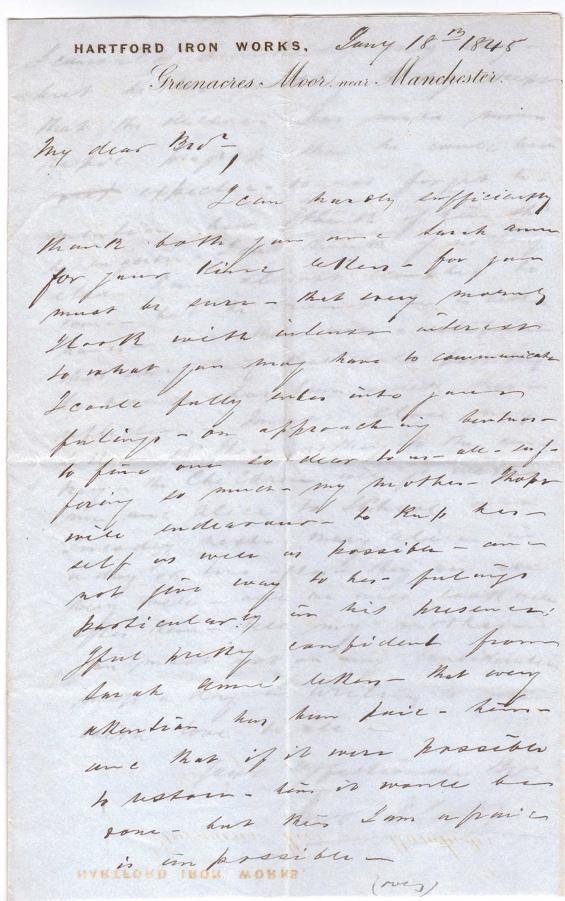 HARTFORD IRON WORKS,
Jany 18th 1845
Greenacres Moor near Manchester.
My dear Bror,
I can hardly sufficiently
thank both you and Sarah Anne
for your kind letters - for you
must be sure - that every morning
I look with intense interest
to what you may have to communicate
I could fully enter into your
feelings - on approaching
to find one so dear to us - all - suf-
fering so much - my mother - I hope
will endeavour - to keep her-
self as well as possible - and
not give way to her feelings
particularly in his presence.
I feel pretty confident from
Sarah Anne's letters - that every
attention has been paid - him -
and that if it were possible
to restore - him it would be
done - but this I am afraid
is impossible -
(over)
HARTFORD IRON WORKS.